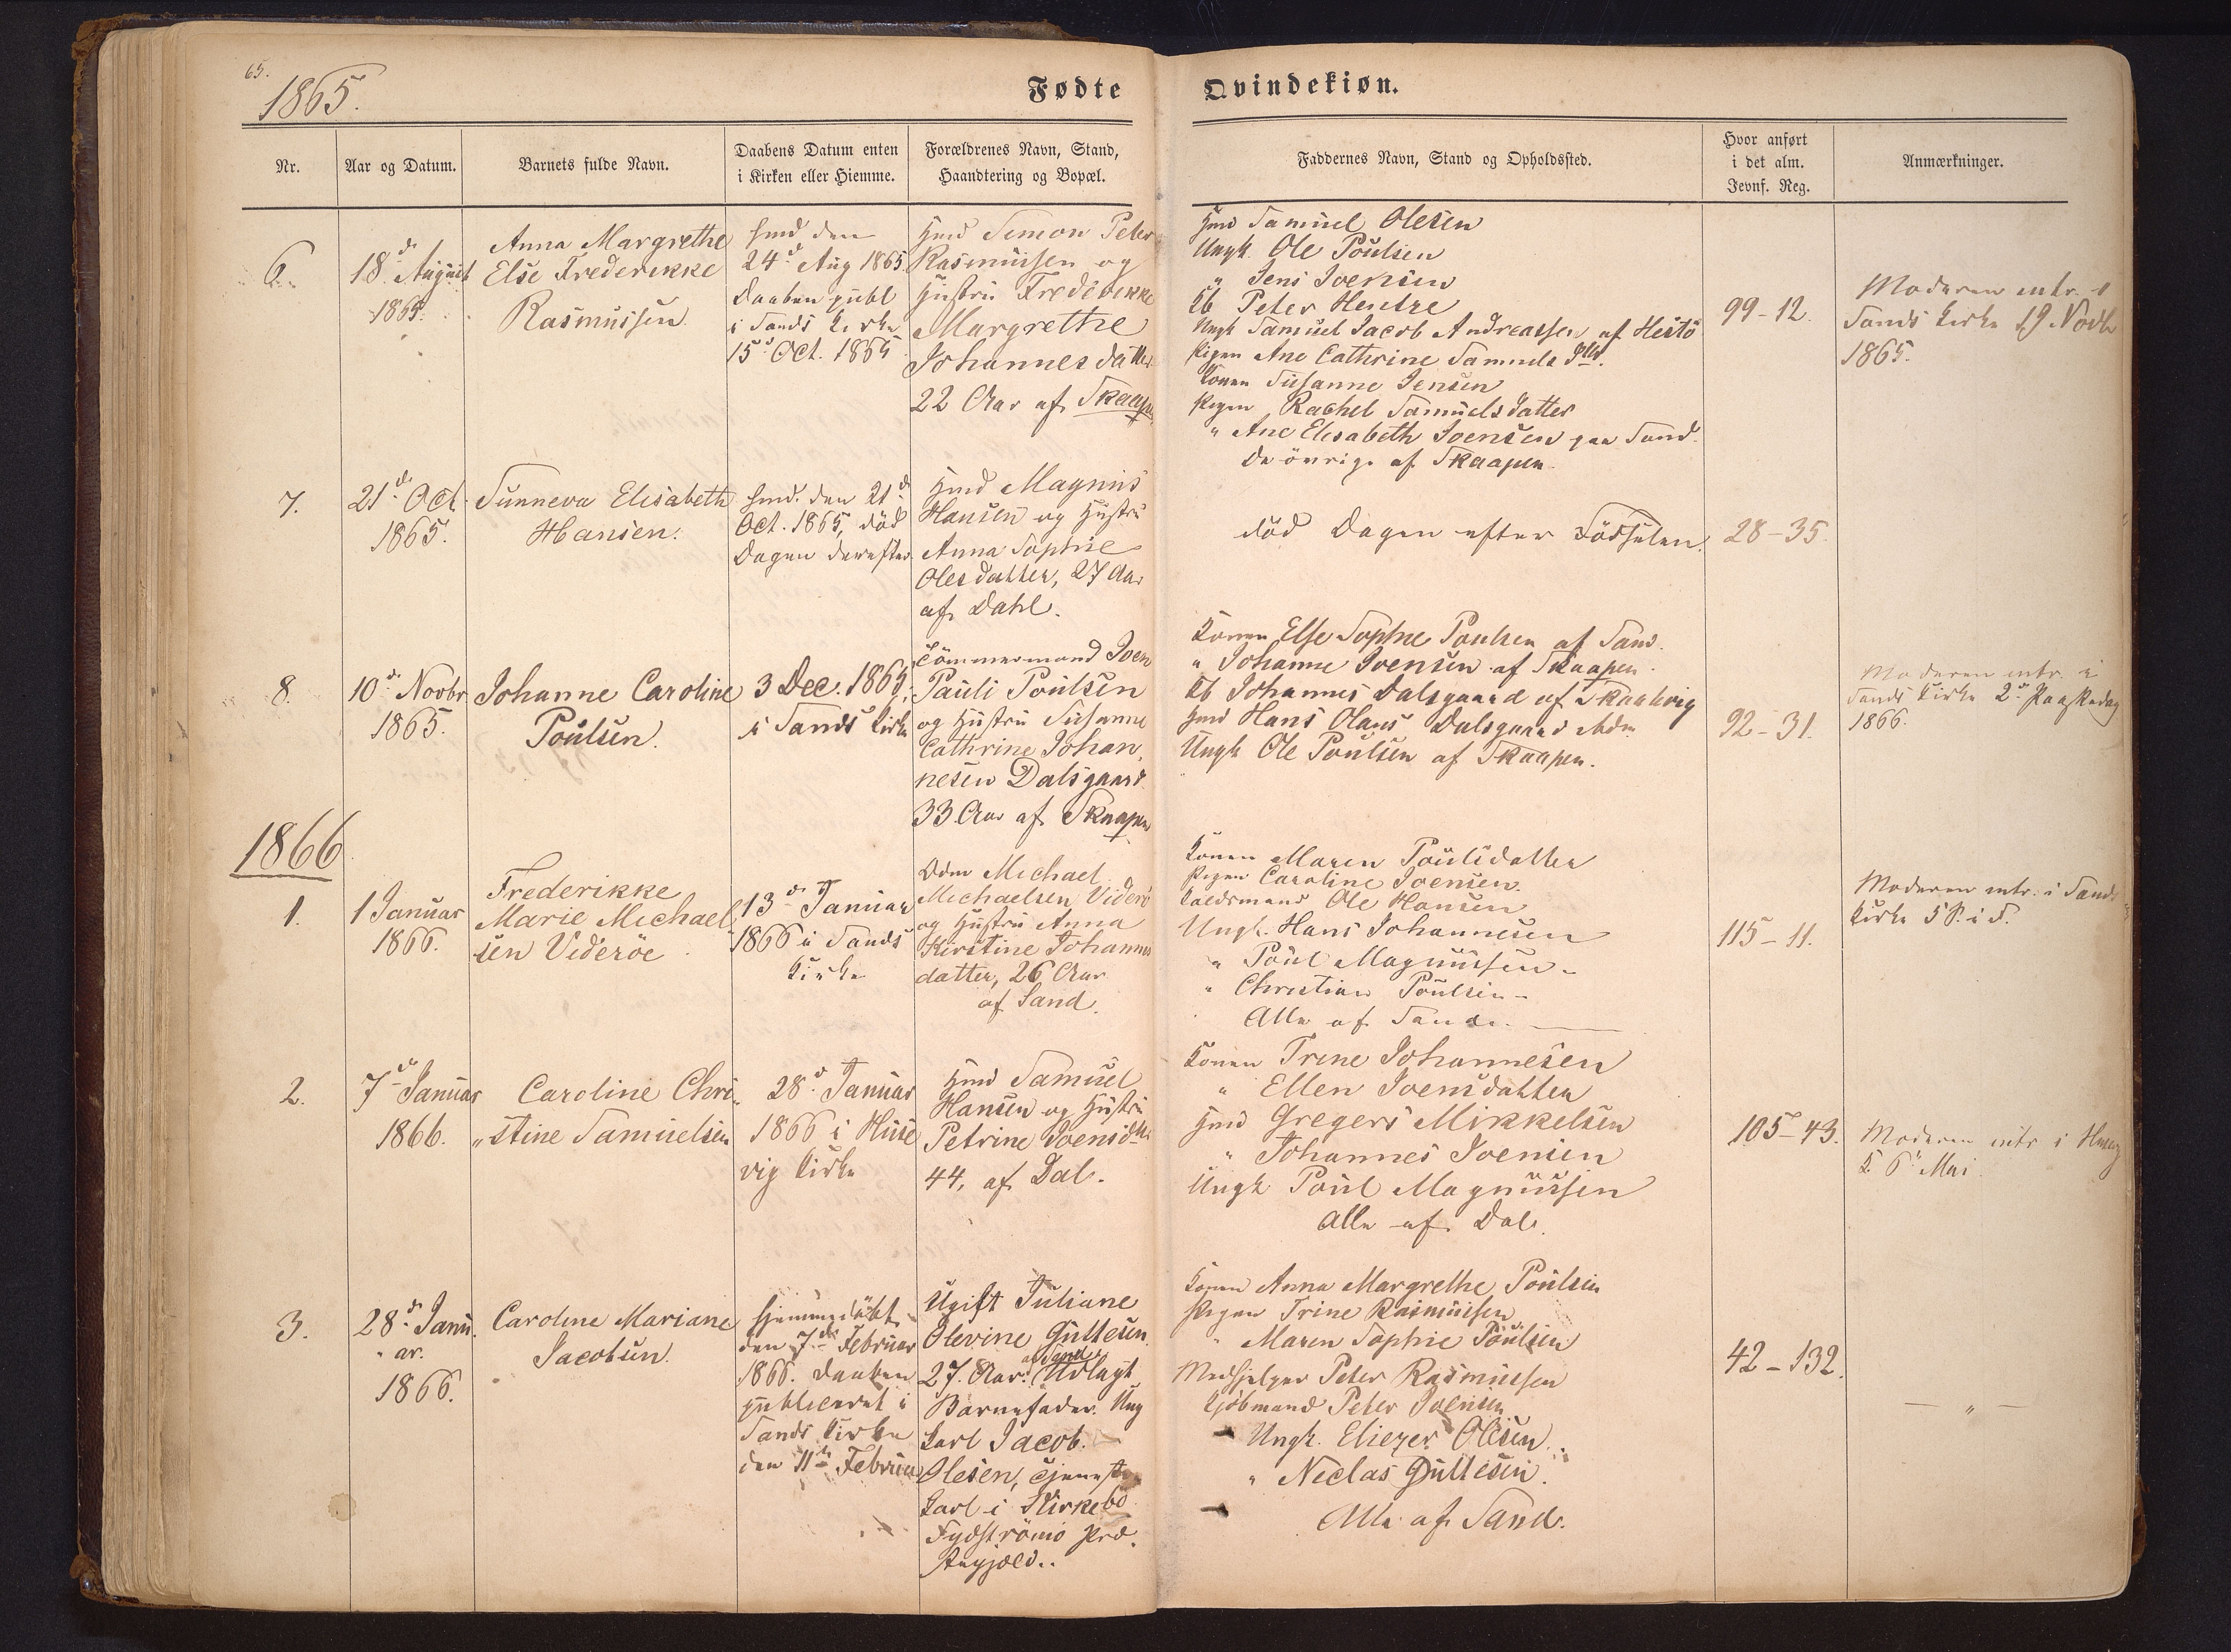 65.
1865.
Fødte
Qvindekiøn.
Nr.
Aar og Datum.
Barnets fulde Navn.
Daabens Datum enten
i Kirken eller Hiemme.
Forældrenes Navn, Stand,
Haandtering og Bopæl.
Faddernes Navn, Stand og Opholdssted.
Hvor anført
i det alm.
Jevnf. Reg.
Anmærkninger.
6.
18d August
1865.
Anna Margrethe
Else Frederikke
Rasmussen
hmd den
24d Aug 1865.
Daaben publ
i Sands Kirke
15d Oct. 1865
Hmd Simon Peter
Rasmussen og
Hustru Frederikke
Margrethe
Johannesdatter
22 Aar af Skaapen
Hmd Samuel Olesen
Ungk. Ole Poulsen
" Jens Joensen
Kb Peter Hentze
Ungk Samuel Jacob Andreassen af Hestö
Pigen Ane Cathrine Samuels Dttr.
Konen Susanne Jensen
Pigen Rachel Samuelsdatter
" Ane Elisabeth Joensen paa Sand
De övrige af Skaapen.
99-12.
Moderen intr. i
Sands Kirke 19 Novbr
1865.
7.
21d Oct.
1865.
Sunneva Elisabeth
Hansen.
hmd. den 21d
Oct. 1865, död
Dagen derefter
Hmd Magnus
Hansen og Hustru
Anna Sophie
Olesdatter, 27 Aar
af Dahl.
död Dagen efter Födselen.
28-35.
8.
10d Novbr
1865.
Johanne Caroline
Poulsen.
3 Dec. 1865,
i Sands Kirke
Tömmermand Joen
Pauli Poulsen
og Hustru Susanne
Cathrine Johan,
nesen Dalsgaard
33 Aar af Skaapen
Konen Else Sophie Poulsen af Sand.
" Johanne Joensen af Skaapen.
Kb Johannes Dalsgaard af Skaalevig
Hmd Hans Olaus Dalsgaard
Ungk Ole Poulsen af Skaapen.
92-31.
Moderen intr. i
Sands Kirke 2d Paaskedag
1866.
1866
1.
1 Januar
1866.
Frederikke
Marie Michael,
sen Videröe
13d Januar
1866 i Sands
Kirke
Michael
Michaelsen Viderö
og Hustru Anna
Kirstine Johannes
datter, 26 Aar
af Sand.
Konen Maren Poulsdatter
Pigen Caroline Joensen.
Ole Hansen
Ungk. Hans Johannesen
" Poul Magnussen -
" Christian Poulsen -
Alle af Sand.
115-11.
Moderen intr. i Sands
Kirke
2.
7d Januar
1866.
Caroline Chri,
"stine Samuelsen
28d Januar
1866 i Huse
vig Kirke
Hmd Samuel
Hansen og Hustru
Petrine Joensdtr
44, af Dal.
Konen Trine Johannesen
" Ellen Joensdatter
Hmd Gregers Mikkelsen
" Johannes Joensen
Ungk Poul Magnussen
Alle af Dal.
105-43.
Moderen intr i
K. 6d Mai
3.
28d Janu,
"ar.
1866.
Caroline Mariane
Jacobsen.
hjemmedöbt
den 7de Februar
1866. Daaben
publiceret i
Sands Kirke
den 11te Februar
Ugift Juliane
Olevine Guttesen
af Sand
27. Aar. Udlagt
Barnefader. Ung
Karl Jacob.
Olesen, Tjeneste
Karl i Kirkebö
Sydströmö Præ,
stegjeld..
Konen Anna Margrethe Poulsen
Pigen Trine Rasmussen
" Maren Sophie Poulsen
Medhjelper Peter Rasmussen
Kjöbmand Peter Joensen
Ungk. Eliezer Olesen.
" Niclas Guttesen.
Alle af Sand.
42-132.
- " -